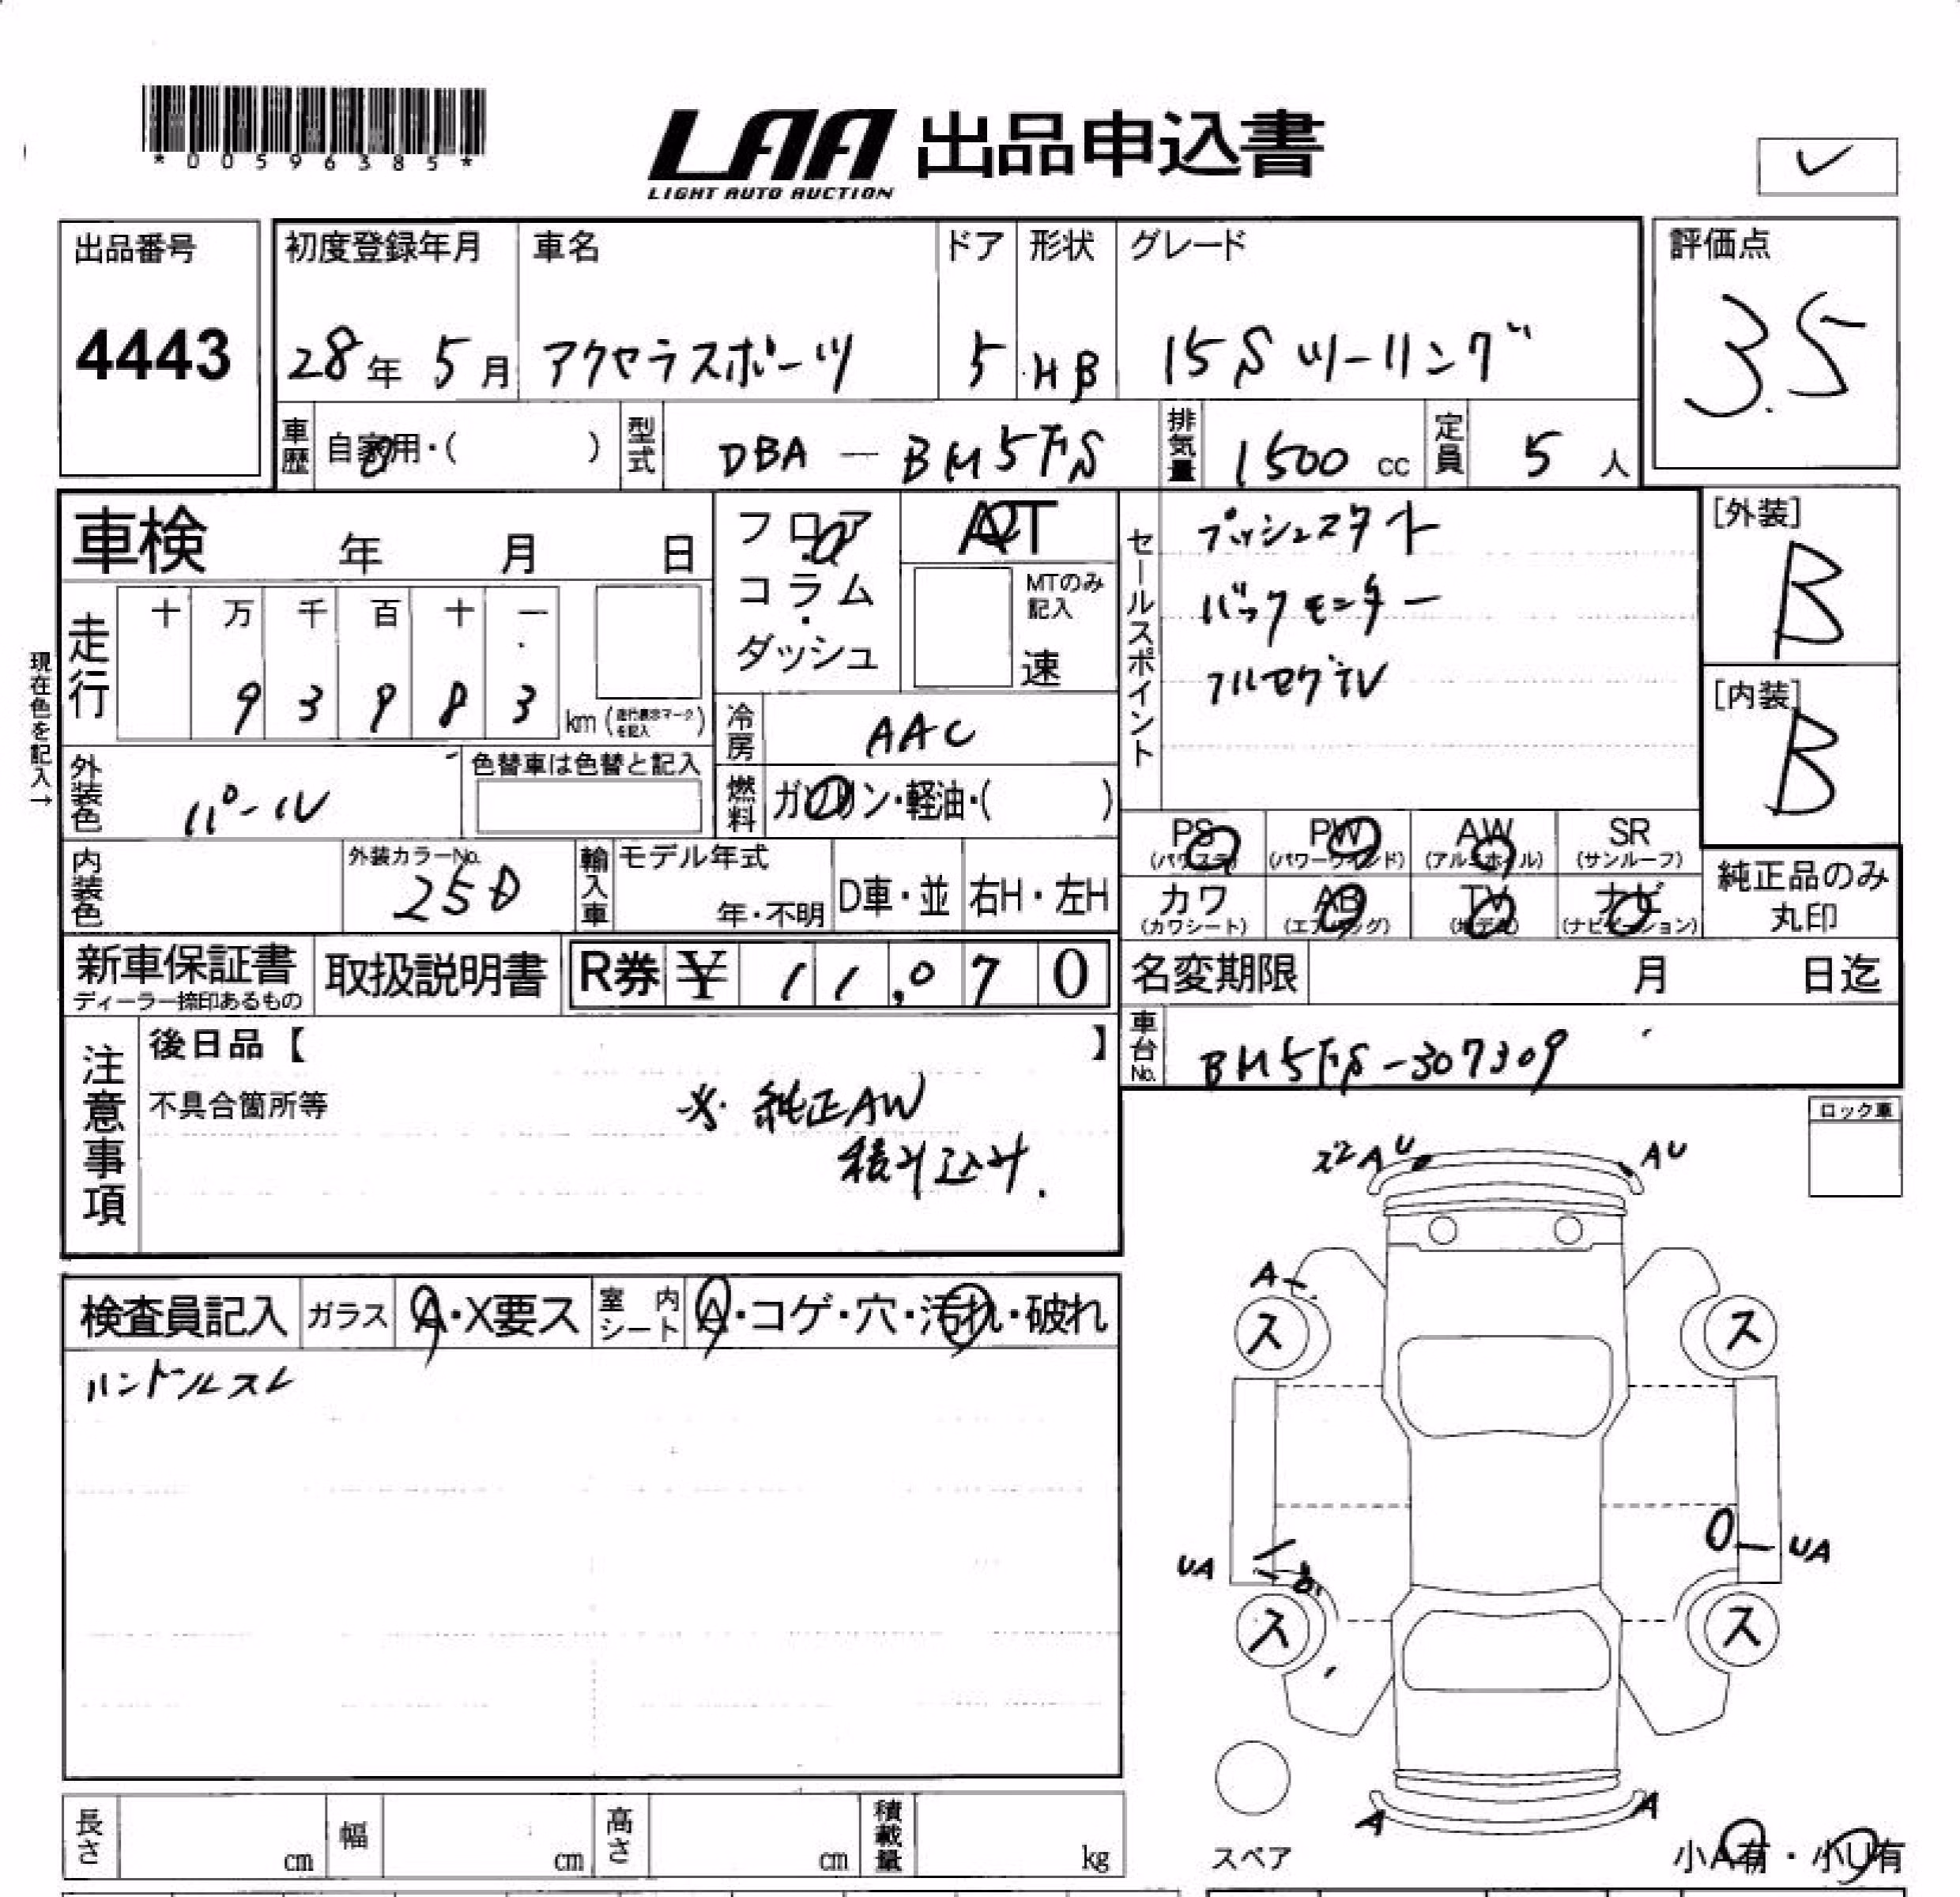 *00596385*
LAA 出品申込書
LIGHT AUTO AUCTION
出品番号
4443
初度登録年月
28年 5月
車名
アクセラスポーツ
ドア
5
形状
HB
グレード
15S ツーリング
評価点
3.5
車歴
自家用・( )
型式
DBA - BM5FS
排気量
1500 cc
定員
5 人
車検 年 月 日
フロア
・
コラム
・
ダッシュ
AT
MTのみ
記入
速
セールスポイント
プッシュスタート
バックモニター
フルセグTV
[外装]
B
[内装]
B
現在色を記入→
走行
十 万 千 百 十 一
9 3 9 8 3
km (走行表示マークを記入)
冷房
AAC
外装色
パール
色替車は色替と記入
燃料
ガソリン・軽油・( )
PS
(パワステ)
PW
(パワーウインド)
AW
(アルミホイル)
SR
(サンルーフ)
内装色
外装カラーNo.
25D
輸入車
モデル年式
年・不明
D車・並
右H・左H
カワ
(カワシート)
AB
(エアバッグ)
TV
(地デジ)
ナビ
(ナビゲーション)
純正品のみ
丸印
新車保証書
ディーラー捺印あるもの
取扱説明書
R券 ¥ 11,070
名変期限 月 日迄
注意事項
後日品【 】
不具合箇所等
※ 純正AW
積み込み.
車台No.
BM5FS-307309
ロック車
検査員記入
ガラス
A・X要ス
室内シート
A・コゲ・穴・汚れ・破れ
ハンドルスレ
AU
AU
A
ス
ス
UA
UA
ス
ス
A
A
スペア
小A有・小U有
長さ cm
幅 cm
高さ cm
積載量 kg